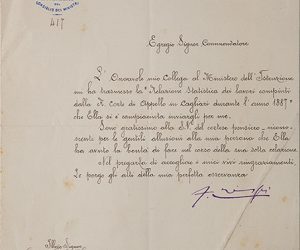 CONSIGLIO DEI MINISTRI
417
Egregio Signor Commendatore
L'Onorevole mio Collega al Ministero dell'Istruzione
mi ha trasmesso la "Relazione Statistica dei lavori compiuti
della R. Corte di Appello in Cagliari durante l'anno 1887"
che Ella si è compiaciuta inviargli per me.
Sono gratissimo alla S.V. del cortese pensiero e ricono-
scente per la gentile allusione alla mia persona che Ella
ha avuto la bontà di fare nel corso della sua dotta relazione.
La pregarla di accogliere i miei vivi ringraziamenti
Le porgo gli atti della mia perfetta osservanza.